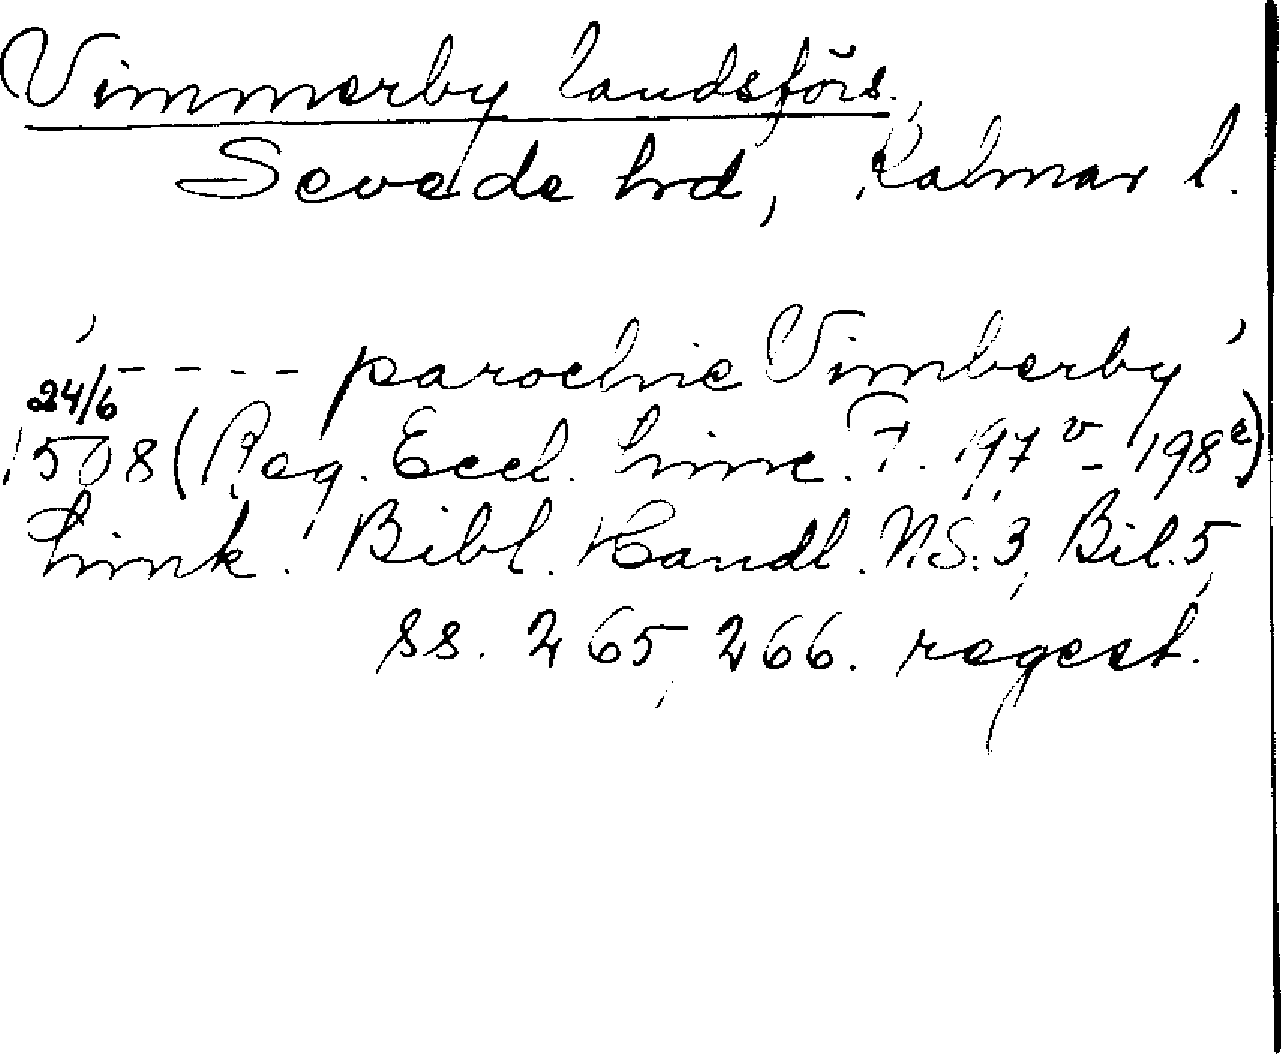 Vimmerby landsförs.
Sevede hrd, Kalmar l.
' - - - - parochie Vimberby '
24/6
1508 (Reg. Eccl. Linc. F. 197 v - 198 r)
Link. Bibl. Handl. N.S. 3, Bil. 5,
ss. 265, 266. regest.